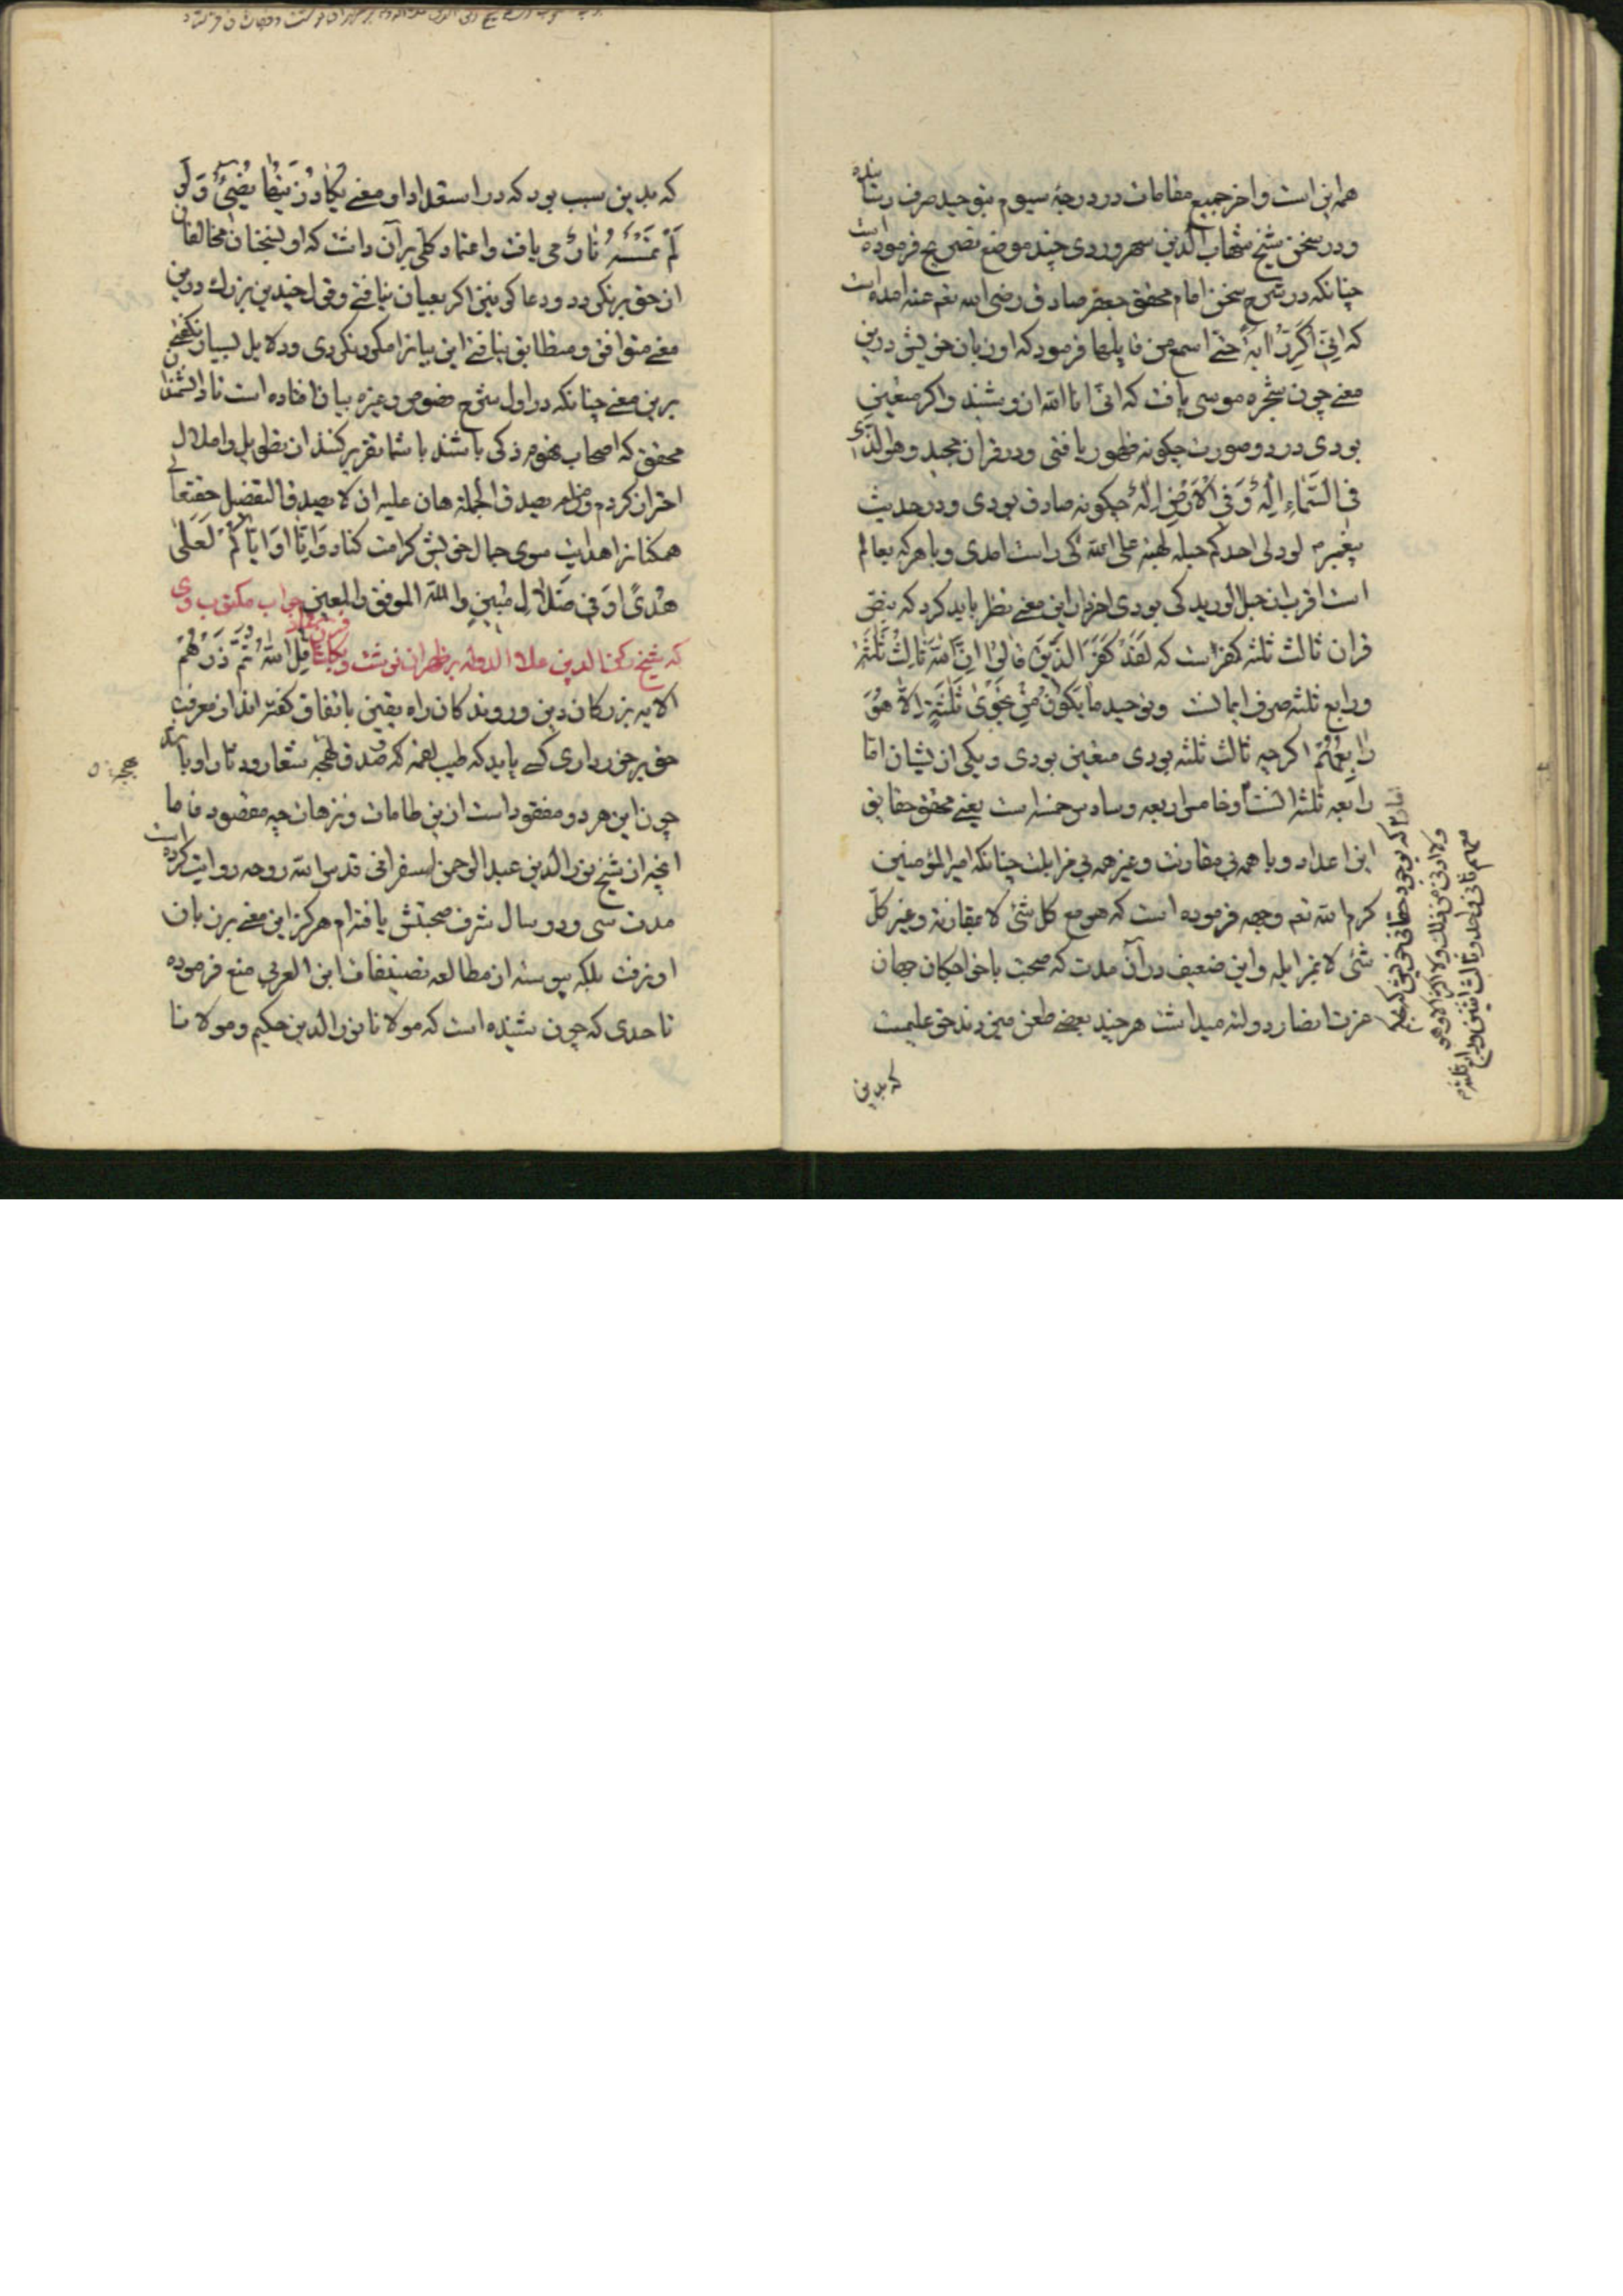 همه این است و اخر جمیع مقامات در درجهٔ سیوم بتوحید صرف رسانیده
و در سخن شیخ شهاب الدین سهروردی چند موضع تصریح فرموده است
چنانکه در شرح سخن امام محقق جعفر صادق رضی الله تعم عنه امده است
که اِنّی اُکَرِّرُ اٰیةً حتی اسمع من قایلها فرمود که او زبان خویش درین
معنے چون شجره موسی یافت که انّی انا الله ازو بشنید و اکر متعین
بودی در دو صورت چکونه ظهور یافتی و در قران مجید و هو الّذی
فی السَّماءِ اِلٰهٌ وَفِی الاَرْضِ اِلٰهٌ چکونه صادق بودی و در حدیث
پیغمبرم لو دلی احدکم حبله لهبط علی الله کی راست امدی و با هرکه بعالم
است اقرب از حبل الورید کی بودی اخر در این معنے نظر باید کرد که بنص
قران ثالث ثلثه کفر است که لَقَدْ کَفَرَ الَّذینَ قالوُا اِنَّ اللهَ ثالِثُ ثَلٰثَةٍ
و رابع ثلثه صرف ایمانست و توحید ما یَکُونُ مِنْ نَجْوٰی ثَلٰثَةٍ اِلاّ هُوَ
رابِعُهُمْ اکرچه ثالث ثلثه بودی متعین بودی و یکی از یشان اما
رابعه ثلثه انست و خامس اربعه و سادس خمسه است یعنے محقق حقایق
این اعداد و با همه بی مقاربت و غیر همه بی مزایلت چنانکه امیر المؤمنین
کرم الله تعم وجهه فرموده است که هو مع کل شئ لا بمقارنة و غیر کلّ
شئ لا بمزایله و این ضعیف در آن مدت که صحبت با خواجکان جهان
عزت انصار دولته میداشت هرچند بعضے طعن میزدند حق علیمست
که بدین
که بوجود حقانی خویش که
ولا ادنی من ذلک ولا اکثر الا و هو
معهم ثانی واحد و ثالث اثنین و رابع ثلثه
که بدین سبب بود که در استعداد او معنے یَکادُ زَیْتُها یُضیءُ وَلَو
لَمْ تَمْسَسْهُ نارٌ می یافت و اعتماد کلی بر آن داشت که او بسخنان مخالفان
از حق برنکردد و دعاکوی نیز اکر بعیان نیافتے و قول چندین بزرك درین
معنے متوافق و متطابق نیافتے این بیانرا مکرر نکردی و دلایل بسیار نکفتے
برین معنے چنانکه در اول شرح فصوص و غیره بیان افتاده است تا دانشمندان
محقق که اصحاب فهوم ذکی باشند با شما تقریر کنند از تطویل و املال
احتراز کردم و من لم یصدق الجملة هان علیه ان لا یصدق التفصیل حقتعالی
همکنانرا هدایت سوی جمال خویش کرامت کناد وَاِنّا اَوْ اِیّاکُمْ لَعَلٰی
هُدًی اَوْ فی ضَلالٍ مُبینٍ والله الموفق والمعین جواب مکتوب وی
که شیخ رکن الدین علاء الدوله بر ظهر ان نوشت و بکاشان فرستاد قُلِ اللهُ ثُمَّ ذَرْهُمْ
الایه بزرکان دین و روندکان راه یقین باتفاق کفته اند از معرفت
حق برخورداری کسے یابد که طیب لقمه و صدق لهجه شعار و دثار او باشد
چون این هر دو مفقود است ازین طامات و نزهات چه مقصود فاما
انچه از شیخ نور الدین عبد الرحمن اسفراینی قدس الله روحه روایت کرده است
مدت سی و دو سال شرف صحبتش یافته ام هرکز این معنے بر زبان
او نرفت بلکه پیوسته از مطالعه تصنیفات ابن العربی منع فرموده
تا حدی که چون شنیده است که مولانا نور الدین حکیم و مولانا